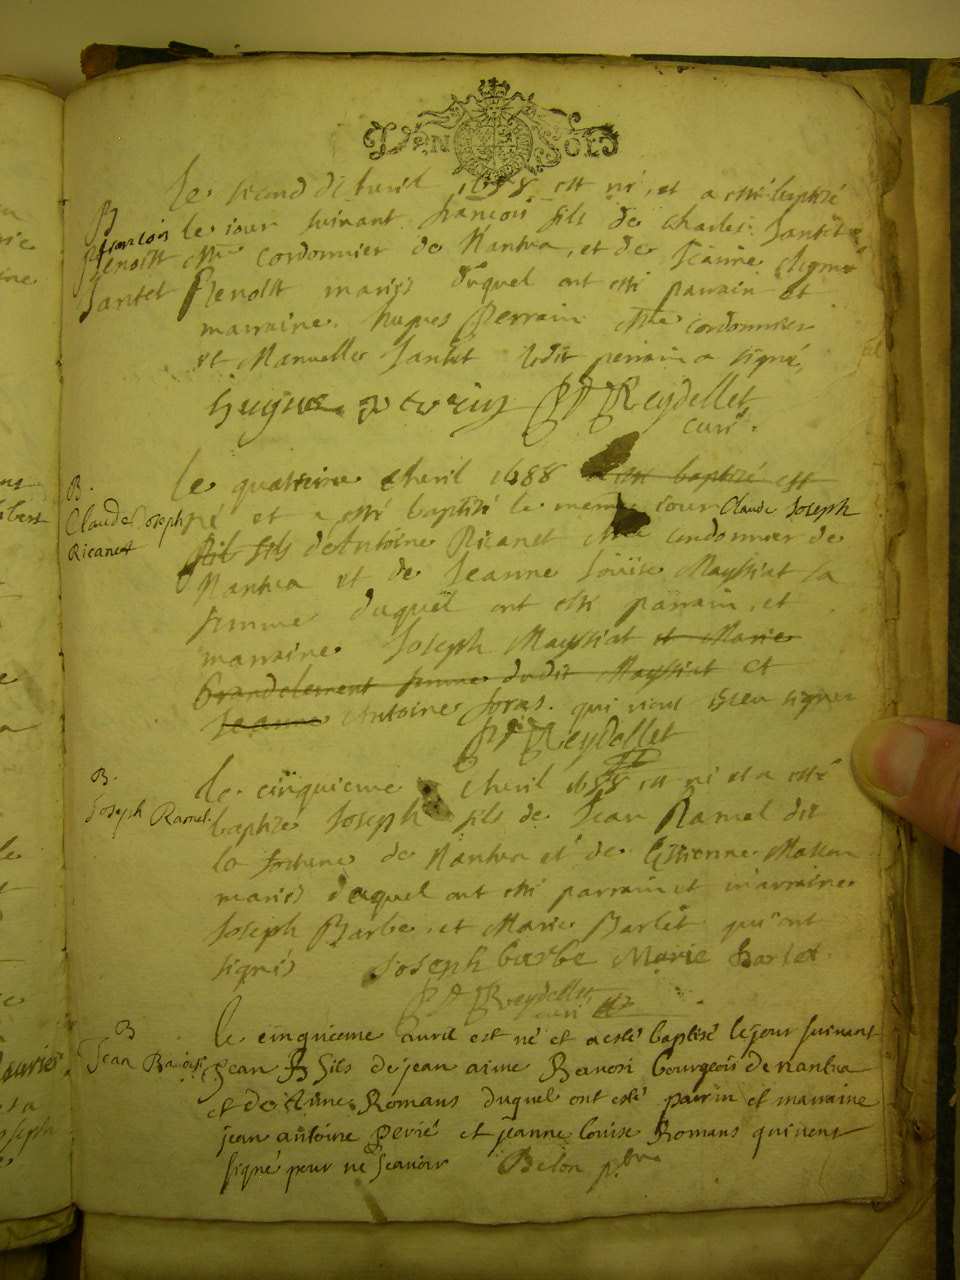 UN SOL
Le second d'Avril 1688 est né, et a esté baptisé
B
françois
Benoist
Jantet
le jour suivant françois fils de Charles Jantet
Me cordonnier de Nantua, et de Jeanne
Benoist mariés duquel ont esté parrain et
marraine Hugues Perrain Me cordonnier
et Manuelle Jantet ledit perrain a signé
hugue perrin Reydellet
curé.
B.
Claude Joseph
Ricanet
le quatrieme Avril 1688 a esté baptisé est
né et a esté baptisé le mesme jour Claude Joseph
fils fils de Antoine Ricanet Me cordonnier de
Nantua et de Jeanne Louise Mayssiat sa
femme duquel ont esté parrain, et
marraine Joseph Mayssiat et Marie
Grandclement femme dudit Mayssiat et
Jeanne Antoine qui n'ont sceu signer
Reydellet
B.
Joseph Ramel
le cinquieme Avril 1688 est né et a esté
baptisé Joseph fils de Jean Ramel dit
la de Nantua et de Estienne
mariés duquel ont esté parrain et marraine
Joseph Barbe, et Marie Barlet qu'ont
signés Joseph barbe Marie barlet
Reydellet
curé
B
Jean
le cinquieme avril est né et a esté baptisé le jour suivant
Jean B fils de jean aime bourgeois de nantua
et de Romans duquel ont esté parrin et marraine
jean antoine perié et jeanne louise Romans qui n'ont
signé pour ne scavoir Belon pbre